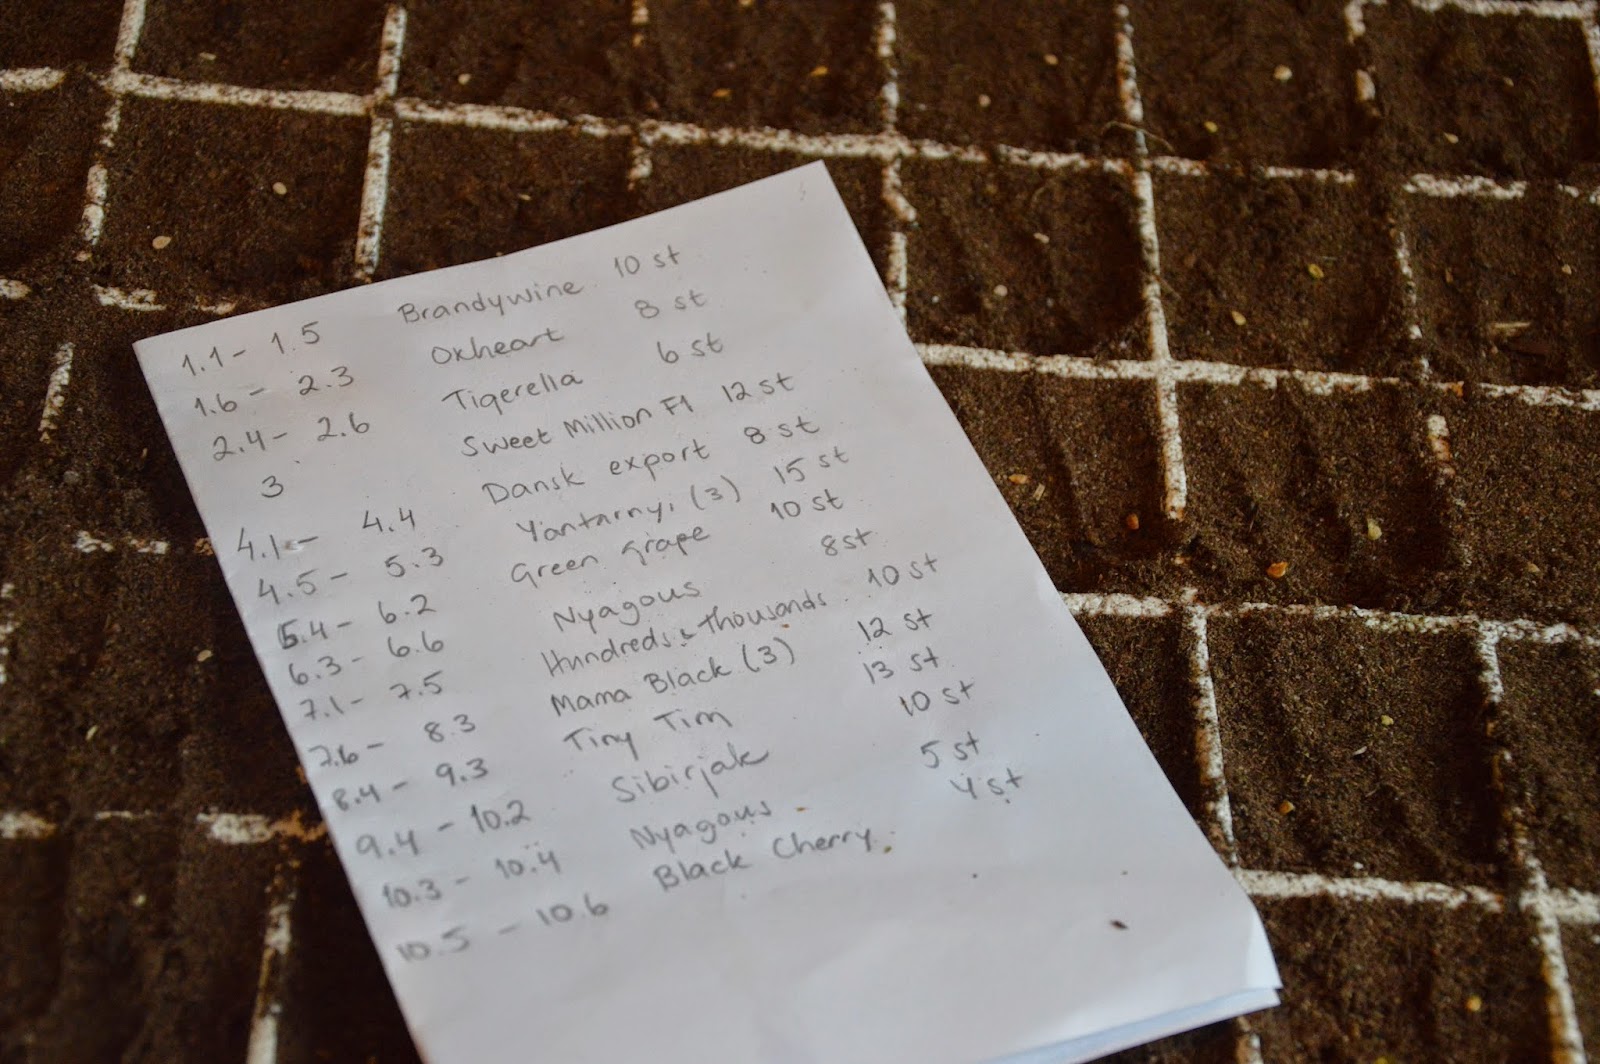 1.1 - 1.5 Brandywine 10 st
1.6 - 2.3 Oxheart 8 st
2.4 - 2.6 Tigerella 6 st
3 Sweet Million F1 12 st
4.1 - 4.4 Dansk export 8 st
4.5 - 5.3 Yantarnyi (3) 15 st
5.4 - 6.2 Green grape 10 st
6.3 - 6.6 Nyagous 8 st
7.1 - 7.5 Hundreds & thousands 10 st
7.6 - 8.3 Mama Black (3) 12 st
8.4 - 9.3 Tiny Tim 13 st
9.4 - 10.2 Sibirjak 10 st
10.3 - 10.4 Nyagous 5 st
10.5 - 10.6 Black Cherry 4 st